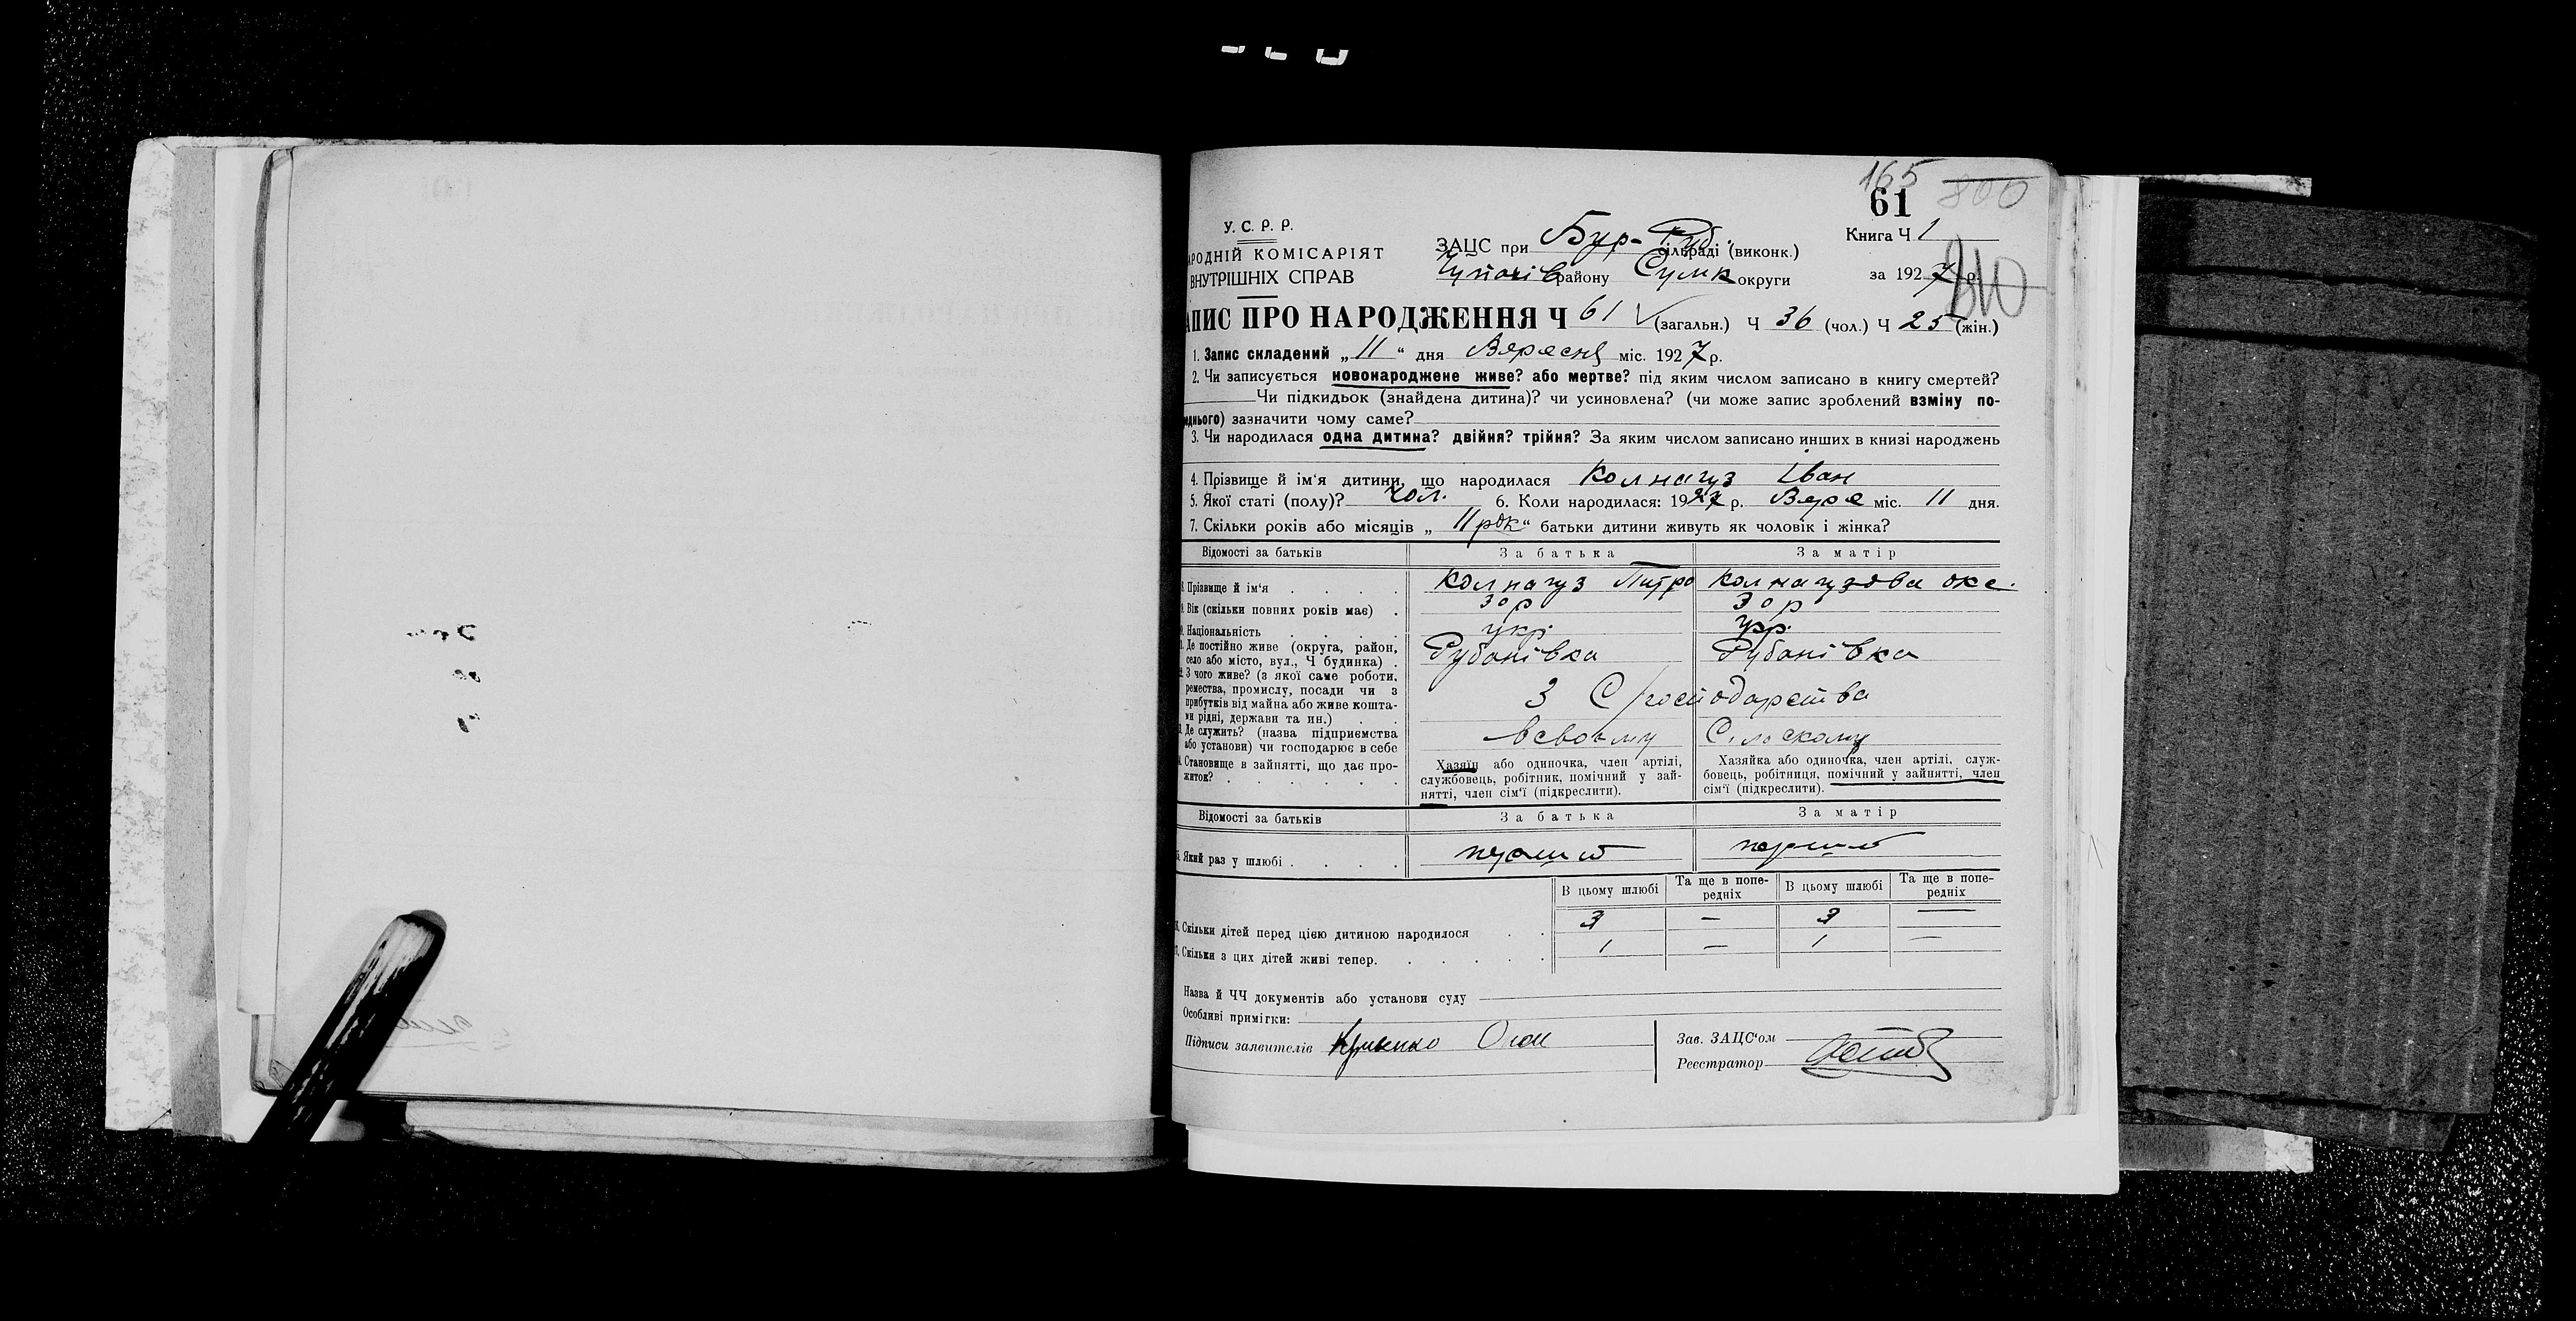 165 800
61
У. С. Р. Р.
АРОДНІЙ КОМІСАРІЯТ
ВНУТРІШНІХ СПРАВ
ЗАЦС при Бур-Руб. сільраді (виконк.)
району Сумк округи
Книга Ч 1
за 1927 р.
АПИС ПРО НАРОДЖЕННЯ Ч 61 (загальн.) Ч 36 (чол.) Ч 25 (жін.)
1. Запис складений „ 11 “ дня Вересня міс. 1927 р.
2. Чи записується новонароджене живе? або мертве? під яким числом записано в книгу смертей?
Чи підкидьок (знайдена дитина)? чи усиновлена? (чи може запис зроблений взміну по-
еднього) зазначити чому саме?
3. Чи народилася одна дитина? двійня? трійня? За яким числом записано инших в книзі народжень
4. Прізвище й ім‘я дитини, що народилася Колпагуз Іван
5. Якої статі (полу)? чол. 6. Коли народилася: 1927 р. Вере міс. 11 дня.
7. Скільки років або місяців „ 11 рок “ батьки дитини живуть як чоловік і жінка?
Відомості за батьків За батька За матір
8. Прізвище й ім‘я Колпагуз Питро Колпагузова окс.
9. Вік (скільки повних років має) 30 р 30 р
0. Національність укр. укр.
1. Де постійно живе (округа, район,
село або місто, вул., Ч будинка) Рубанівка Рубанівка
2. З чого живе? (з якої саме роботи,
ремества, промислу, посади чи з
прибутків від майна або живе кошта-
ми рідні, держави та ин.) З С/господарства
3. Де служить? (назва підприємства
або установи) чи господарює в себе всвоьму Сільскому
4. Становище в зайнятті, що дає про-
житок?
Хазяїн або одиночка, член артілі,
службовець, робітник, помічний у зай-
нятті, член сім‘ї (підкреслити).
Хазяйка або одиночка, член артілі, служ-
бовець, робітниця, помічний у зайнятті, член
сім‘ї (підкреслити).
Відомості за батьків За батька За матір
5. Який раз у шлюбі перший перший
В цьому шлюбі Та ще в попе-редніх В цьому шлюбі Та ще в попе-редніх
6. Скільки дітей перед цією дитиною народилося 3 — 3 —
7. Скільки з цих дітей живі тепер. 1 — 1 —
Назва й ЧЧ документів або установи суду
Особливі примітки:
Підписи заявителів
Зав. ЗАЦС‘ом
Реєстратор